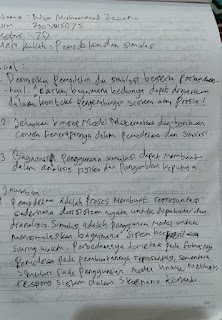 Nama : Nur Muhammad
NIM
Kelas : 7D
Mata kuliah : Pemodelan dan simulasi
Soal :
1. Definisikan pemodelan dan simulasi beserta perbedaan-
nya! Jelaskan bagaimana keduanya dapat digunakan
dalam konteks pengembangan sistem atau proses!
2. Jelaskan konsep Model Matematika dan berikan
contoh Penerapannya dalam Pemodelan dan Simulasi
3. Bagaimana Penggunaan simulasi dapat membantu
dalam analisis risiko dan Pengambilan keputusan.
Jawaban
1. Pemodelan adalah proses membuat representasi
sederhana dari sistem nyata untuk dipelajari dan
dianalisis. Simulasi adalah penggunaan model untuk
mensimulasikan bagaimana sistem berperilaku
Perbedaannya terletak pada fokusnya
Pemodelan pada pembuatannya representasi, sementara
simulasi pada Penggunaan model untuk melihat
respons sistem dalam skenario